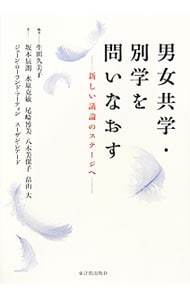 男女共学・
別学を
問いなおす
―新しい議論のステージへ―
生田久美子
坂本辰朗 水原克敏 尾崎博美 八木美保子 畠山 大
ジェーン・ローランド・マーティン スーザン・レアード
東洋館出版社